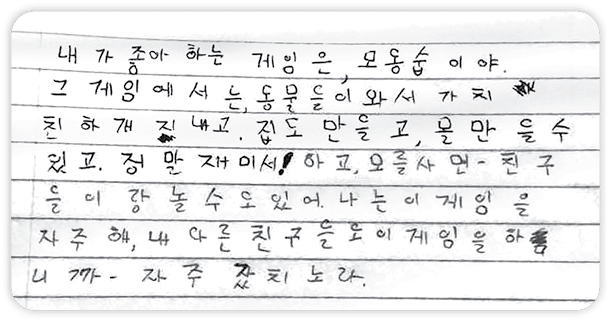 내가 좋아하는 게임은, 모동숲이야.
그 게임에서는, 동물들이와서 가치
친하개 지내고. 집도 만들고, 물만들수
있고. 정말 재미서! 하고, 모를사면- 친구
들이랑 놀수도있어. 나는이게임을
자주해, 내 다른친구들도이게임을하
니까- 자주 같치노라.